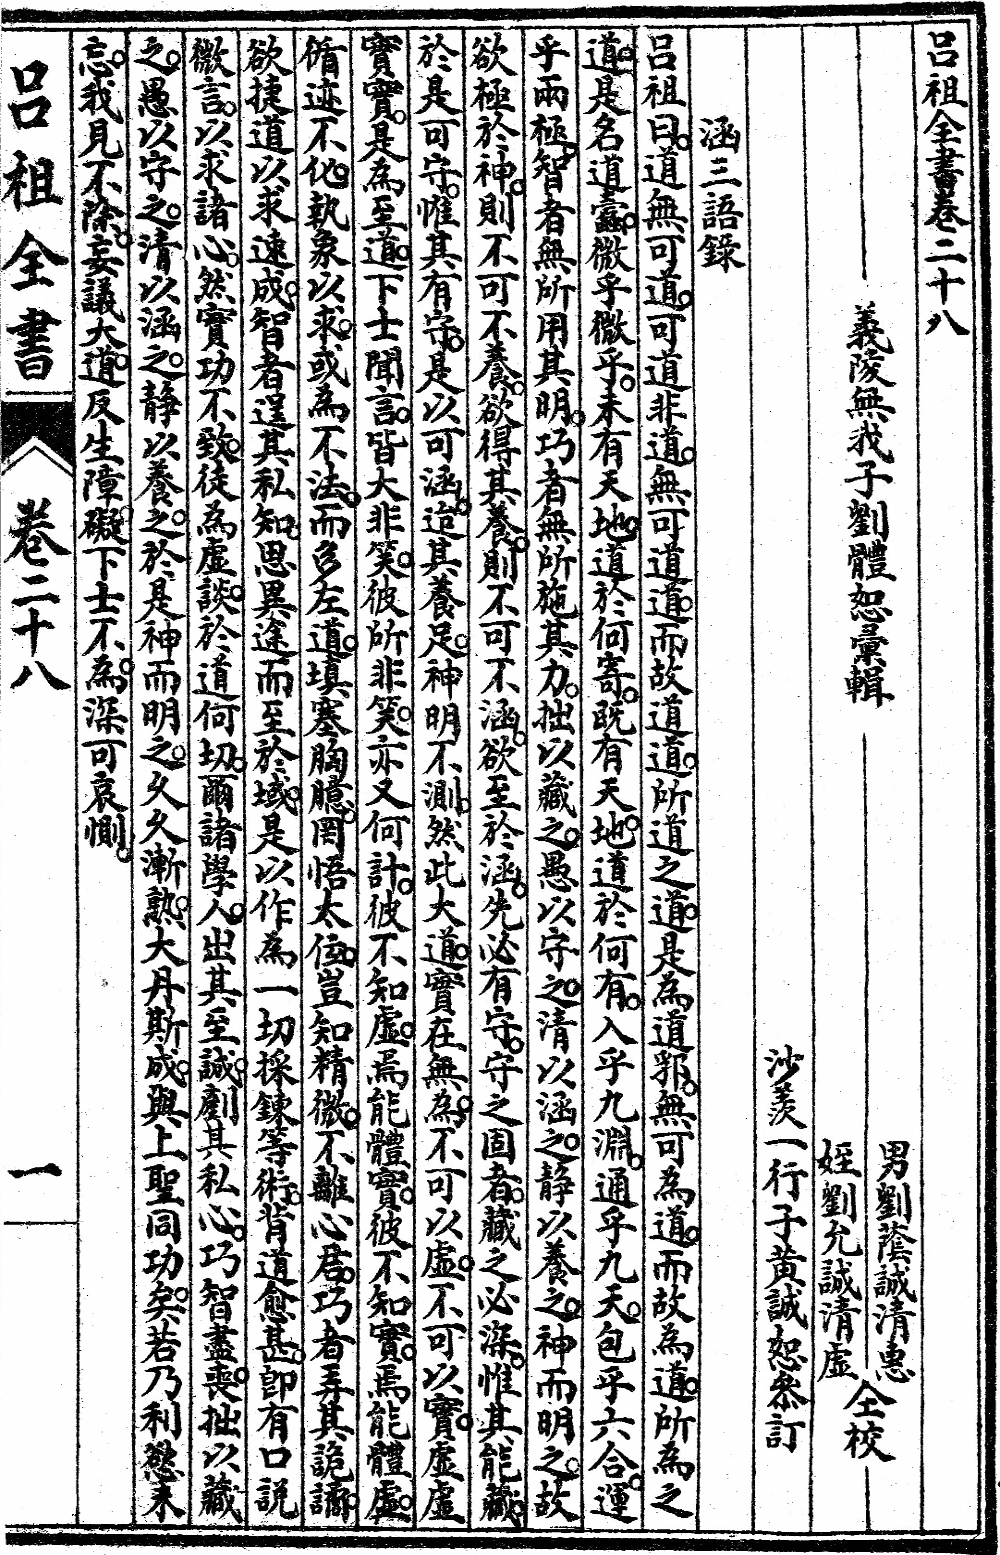 呂祖全書卷二十八
義陵無我子劉體恕彙輯
男劉蔭誠清惠
姪劉允誠清虛
仝校
沙羨一行子黃誠恕叅訂
涵三語錄
呂祖曰。道無可道。可道非道。無可道道。而故道道。所道之道。是為道郛。無可為道。而故為道。所為之
道。是名道蠹。微乎微乎。未有天地。道於何寄。既有天地。道於何有。入乎九淵。通乎九天。包乎六合。運
乎兩極。智者無所用其明。巧者無所施其力。拙以藏之。愚以守之。清以涵之。靜以養之。神而明之。故
欲極於神。則不可不養。欲得其養。則不可不涵。欲至於涵。先必有守。守之固者。藏之必深。惟其能藏。
於是可守。惟其有守。是以可涵。迨其養足。神明不測。然此大道。實在無為。不可以虛。不可以實。虛虛
實實。是為至道。下士聞言。皆大非笑。彼所非笑。亦又何計。彼不知虛。焉能體實。彼不知實。焉能體虛。
循迹不化。執象以求。或為不法。而多左道。填塞胸臆。罔悟太伭。豈知精微。不離心君。巧者弄其詭譎。
欲捷道以求速成。智者逞其私知。思異途而至於域。是以作為一切採鍊等術。背道愈甚。卽有口說
微言。以求諸心。然實功不致。徒為虛談。於道何切。爾諸學人。出其至誠。剷其私心。巧智盡喪。拙以藏
之。愚以守之。清以涵之。靜以養之。於是神而明之。久久漸熟。大丹斯成。與上聖同功矣。若乃利慾未
忘。我見不除。妄議大道。反生障礙。下士不為。深可哀惻。
呂祖全書
卷二十八
一